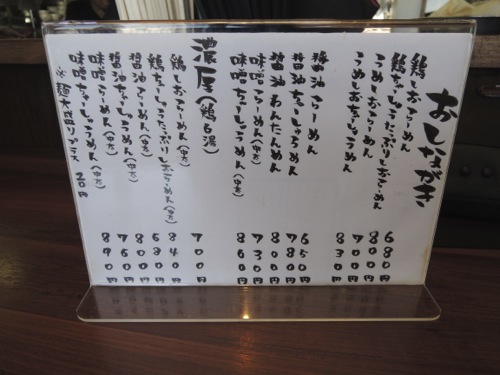 おしながき
鶏しおらーめん 680円
鶏ちゃーしゅうたっぷりしおらーめん 800円
うめしおらーめん 700円
うめしおちゃーしゅうめん 830円
醤油らーめん 650円
醤油ちゃーしゅうめん 780円
醤油わんたんめん 800円
味噌らーめん(中太) 730円
味噌ちゃーしゅうめん(中太) 860円
濃厚(鶏白湯)
鶏しおらーめん(中太) 700円
鶏ちゃーしゅうたっぷりしおらーめん(中太) 840円
醤油らーめん(中太) 680円
醤油ちゃーしゅうめん(中太) 800円
味噌らーめん(中太) 760円
味噌ちゃーしゅうめん(中太) 890円
※麺大盛りプラス